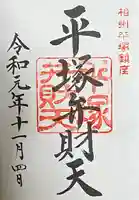 相州平塚鎮座
平塚弁財天
令和元年十一月四日